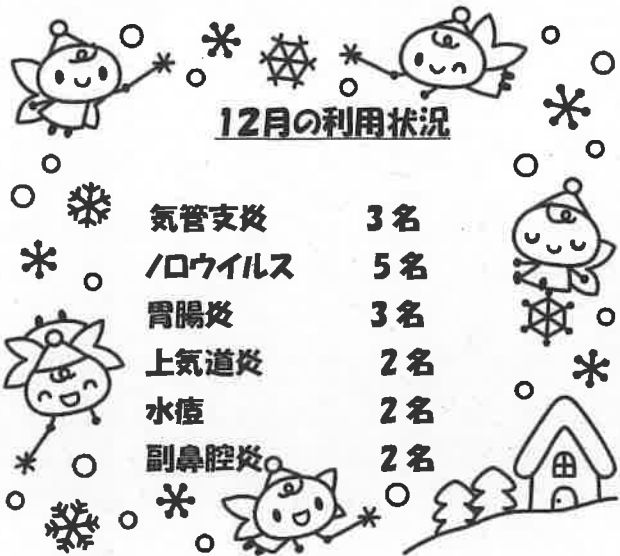 12月の利用状況
気管支炎 3名
ノロウイルス 5名
胃腸炎 3名
上気道炎 2名
水痘 2名
副鼻腔炎 2名